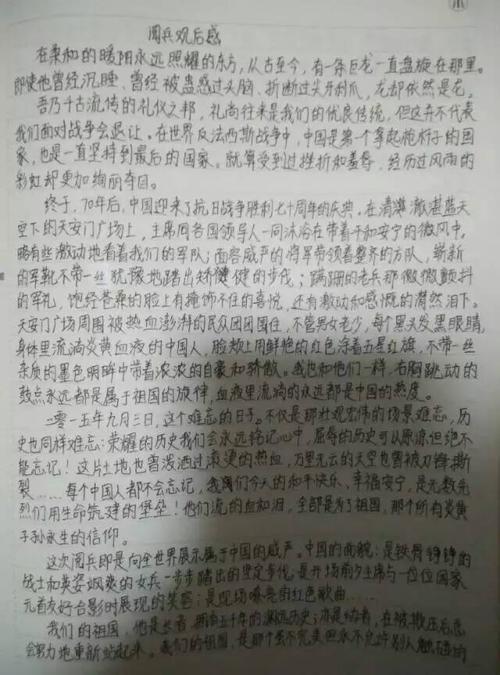 阅兵观后感
在柔和的暖阳永远照耀的东方，从古至今，有一条巨龙一直盘旋在那里。
即使他曾经沉睡、曾经被蛊惑过头脑、折断过尖牙利爪，龙却依然是龙。
吾乃千古流传的礼仪之邦，礼尚往来是我们的优良传统，但这并不代表
我们面对战争会退让。在世界反法西斯战争中，中国是第一个拿起枪杆子的国
家，也是一直坚持到最后的国家。就算受到过挫折和羞辱，经历过风雨的
彩虹却更加绚丽夺目。
终于，70年后，中国迎来了抗日战争胜利七十周年的庆典。在清澈澈湛蓝天
空下的天安门广场上，主席同各国领导人一同沐浴在带着平和安宁的微风中。
略有些激动地看着我们的军队；面容威严的将军带领着整齐的方队，崭新
的军靴不带一丝犹豫地踏出矫健健的步伐；蹒跚的老兵那微微颤抖
的军礼，饱经苍桑的脸上有掩饰不住的喜悦，还有激动和感慨的潸然泪下。
天安门广场周围被热血澎湃的民众团团围住，不管男女老少，每个黑头发黑眼睛，
身体里流淌炎黄血液的中国人，脸颊上用鲜艳的红色涂着五星红旗，不带一丝
杂质的墨色明眸中带着浓浓的自豪和骄傲。我也和他们一样，右胸跳动的
鼓点永远都是属于祖国的旋律，血液里流淌的永远都是中国的热度。
二零一五年九月三日，这个难忘的日子。不仅是那壮观宏伟的场景难忘，历
史也同样难忘：荣耀的历史我们会永远铭记心中，屈辱的历史可以原谅但绝不
能忘记！这片土地也曾泼洒过滚烫的热血，万里无云的天空也曾被刀锋撕
裂……每个中国人都不会忘记，我们今天的和平快乐、幸福安宁，是无数先
烈们用生命筑建的堡垒！他们流的血和泪，全部是为了祖国，那个所有炎黄
子孙永生的信仰。
这次阅兵即是向全世界展示属于中国的威严。中国的面貌：是铁骨铮铮的
战士和英姿飒爽的女兵一步步踏出的坚定步伐，是开场前夕主席与一位位国家
元首友好合影时展现的笑容；是现场嘹亮的红色歌曲……
我们的祖国，他是长者，拥有五千年的 历史；亦是幼者，在被欺压后总
会努力地重新站起来。我们的祖国，是那个虽不完美但永不允许别人触碰的